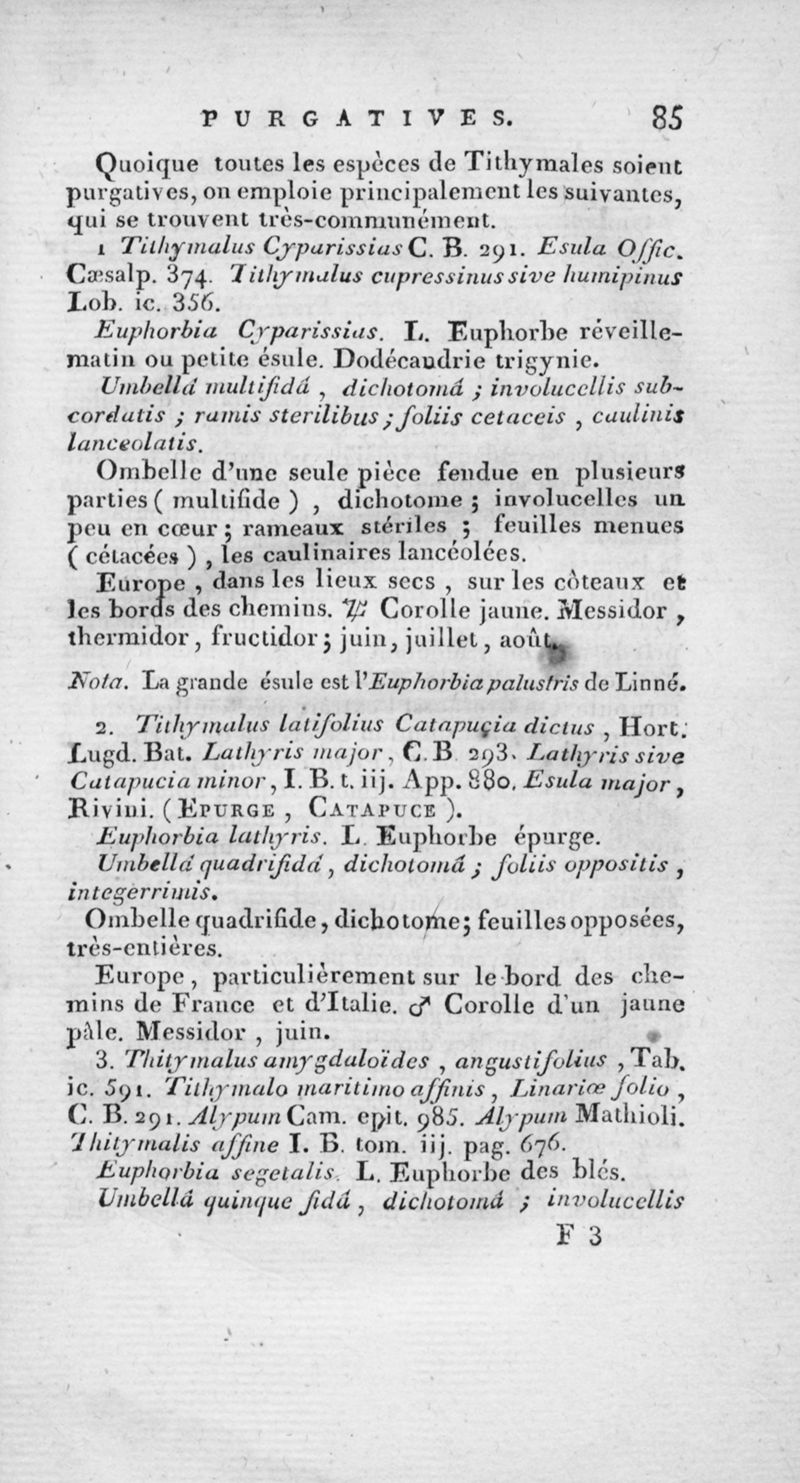 PURGATIVES. 85
Quoique toutes les espèces de Tithymales soient
purgatives, on emploie principalement les suivantes,
qui se trouvent très-communément.
1 Tithymalus Cyparissias C. B. 291. Esula Offic.
Cæsalp. 374. Tithymalus cupressinus sive humipinus
Lob. ic. 356.
Euphorbia Cyparissias. L. Euphorbe réveille-
matin ou petite ésule. Dodécandrie trigynie.
Umbellâ multifidâ , dichotomâ ; involucellis sub-
cordatis ; ramis sterilibus ; foliis cetaceis , caulinis
lanceolatis.
Ombelle d'une seule pièce fendue en plusieurs
parties ( multifide ) , dichotome ; involucelles un
peu en cœur ; rameaux stériles ; feuilles menues
( cétacées ) , les caulinaires lancéolées.
Europe , dans les lieux secs , sur les côteaux et
les bords des chemins. ♃ Corolle jaune. Messidor ,
thermidor, fructidor ; juin, juillet, août.
Nota. La grande ésule est l'Euphorbia palustris de Linné.
2. Tithymalus latifolius Catapuçia dictus , Hort.
Lugd. Bat. Lathyris major, C. B 293. Lathyris sive
Catapucia minor, I. B. t. iij. App. 880. Esula major ,
Rivini. ( EPURGE , CATAPUCE ).
Euphorbia lathyris. L. Euphorbe épurge.
Umbellâ quadrifidâ , dichotomâ ; foliis oppositis ,
integerrimis.
Ombelle quadrifide, dichotome ; feuilles opposées,
très-entières.
Europe, particulièrement sur le bord des che-
mins de France et d'Italie. ♂ Corolle d'un jaune
pâle. Messidor , juin.
3. Thitymalus amygdaloïdes , angustifolius , Tab.
ic. 591. Tithymalo maritimo affinis , Linariæ folio ,
C. B. 291. Alypum Cam. epit. 985. Alypum Mathioli.
Thitymalis affine I. B. tom. iij. pag. 676.
Euphorbia segetalis. L. Euphorbe des blés.
Umbellâ quinque fidâ , dichotomâ ; involucellis
F 3